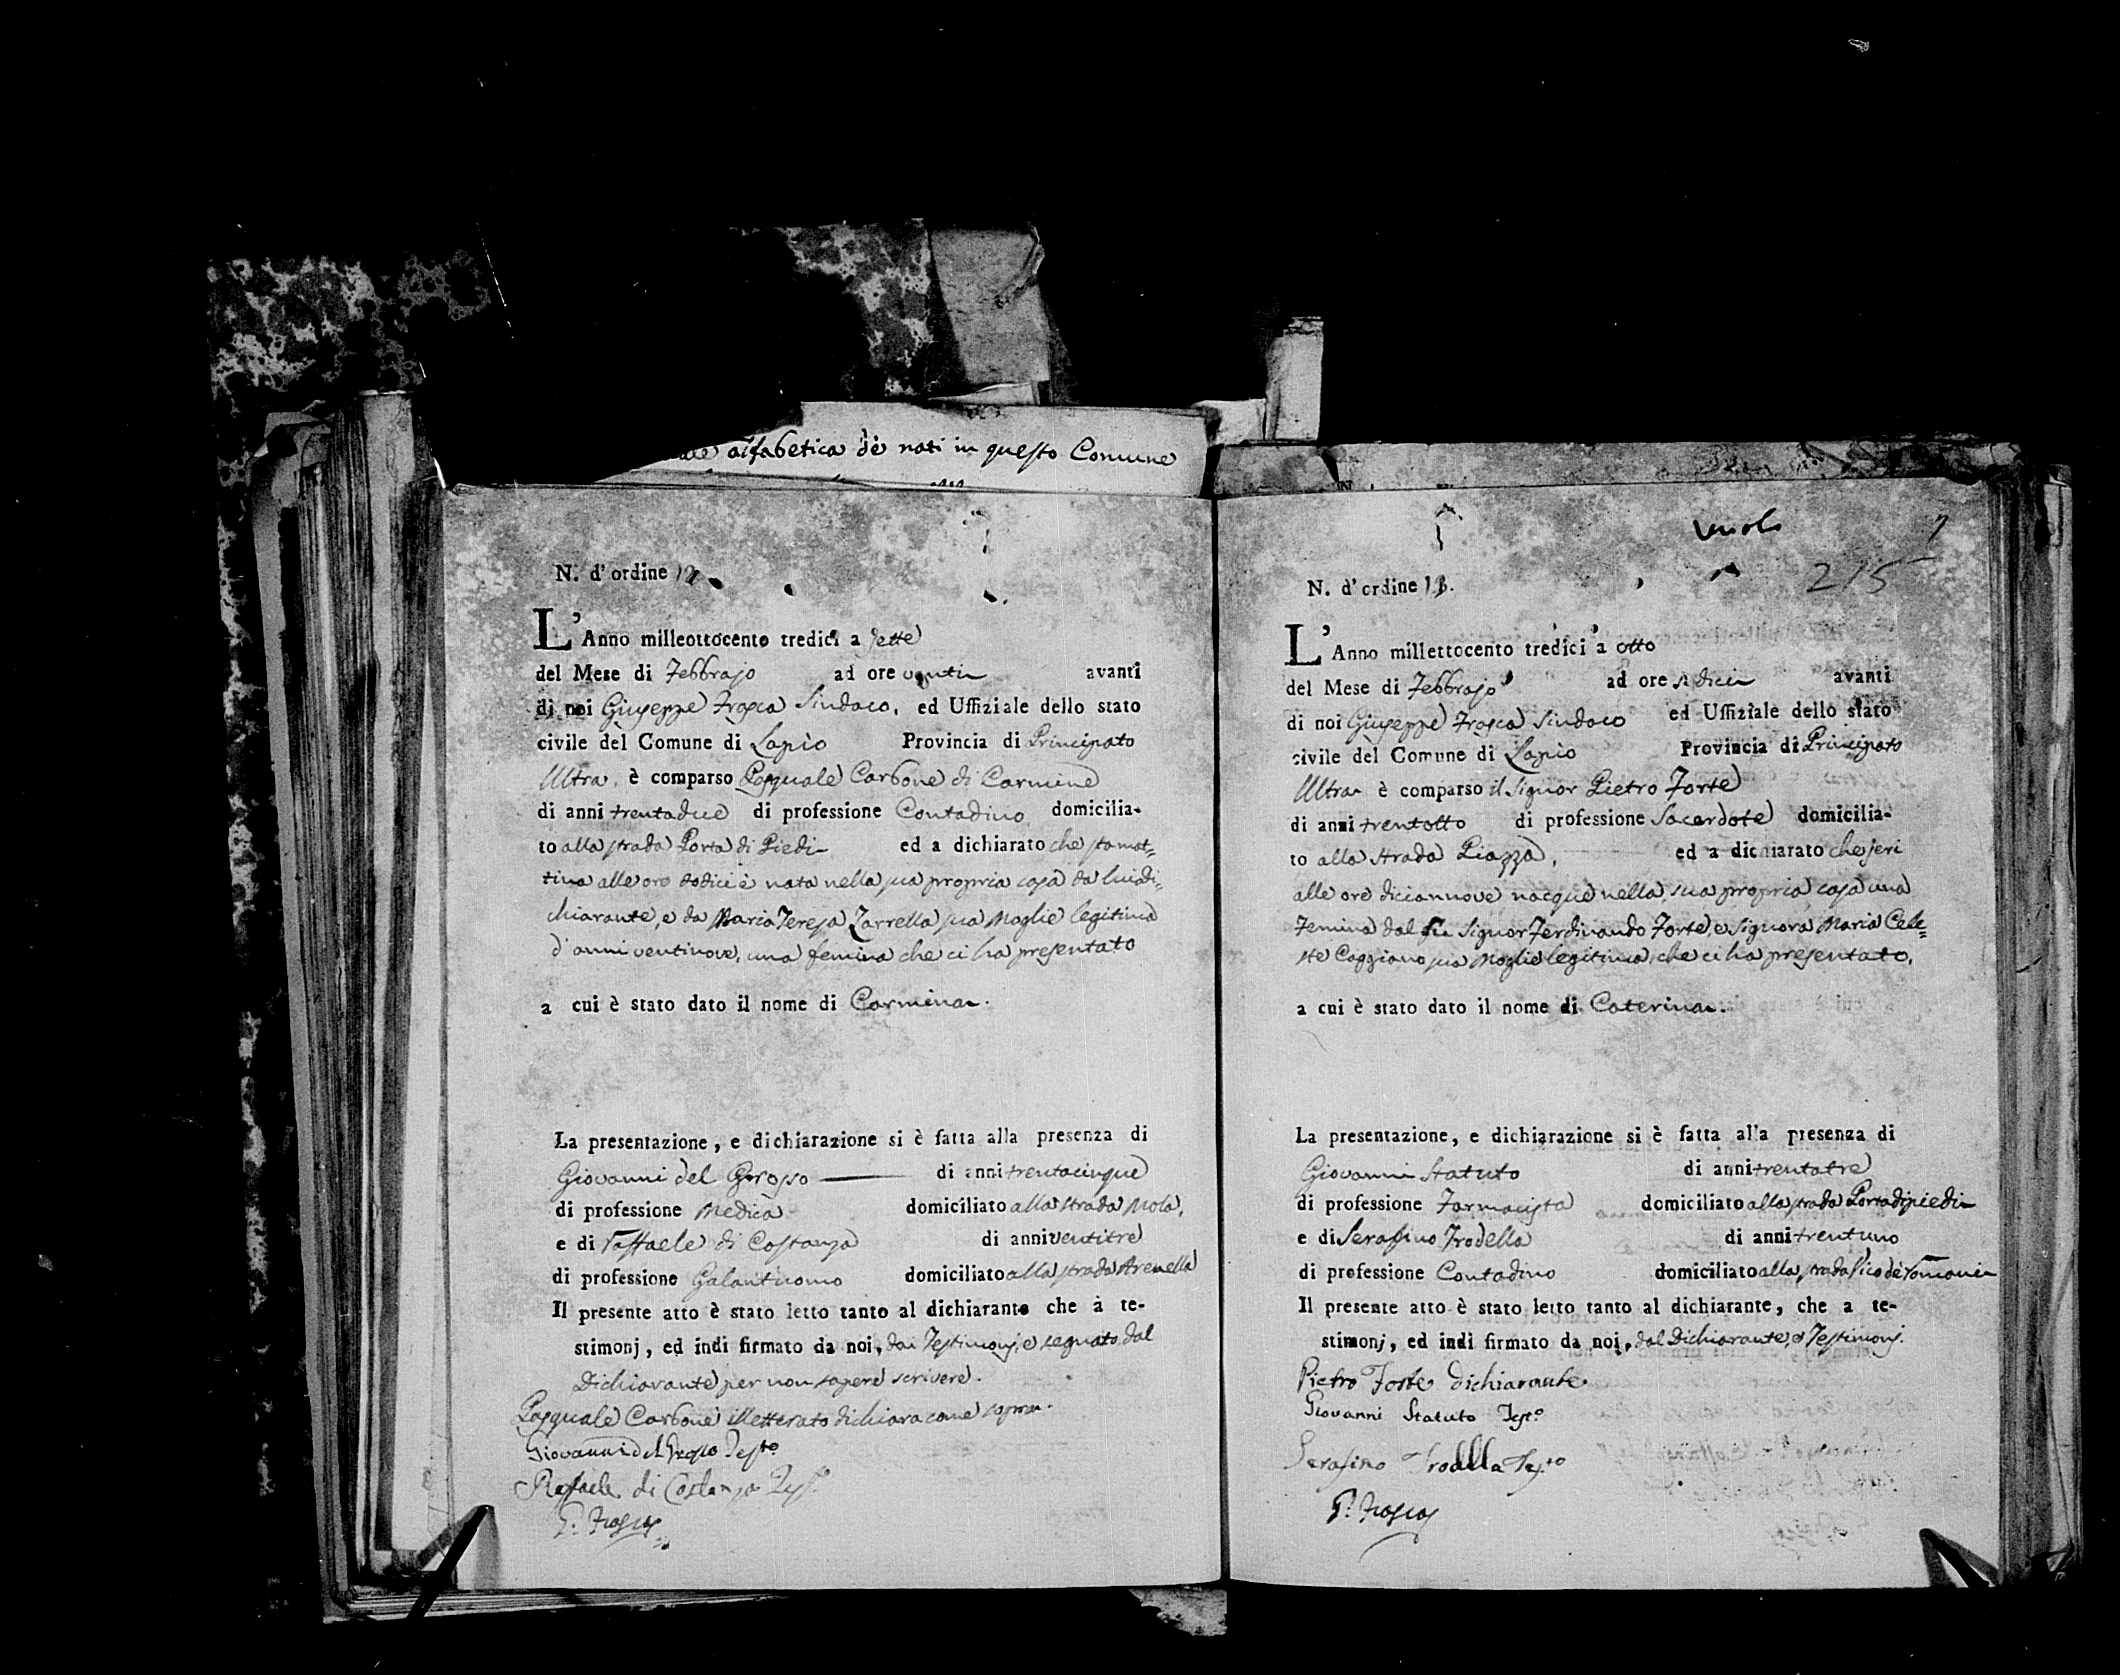 alfabetica dè nati in questo Comune
N. d'ordine 12
L'Anno milleottocento tredici a sette
del Mese di Febbrajo ad ore venti avanti
di noi Giuseppe Frosca Sindaco, ed Uffiziale dello stato
civile del Comune di Lapio Provincia di Principato
Ultra, è comparso Pasquale Carbone di Carmine
di anni trentadue di professione Contadino domicilia-
to alla strada Porta di Piedi ed a dichiarato che stamat=
tina alle ore dodici è nata nella sua propria casa da lui di=
chiarante, e da Maria Teresa Zarrella sua Moglie legitima
d'anni ventinove, una femina che ci ha presentato
a cui è stato dato il nome di Carmina.
La presentazione, e dichiarazione si è fatta alla presenza di
Giovanni del Grosso di anni trentacinque
di professione Medica domiciliato alla strada Mola,
e di Raffaele di Costanza di anni ventitre
di professione Galantuomo domiciliato alla strada Arenella
Il presente atto è stato letto tanto al dichiarante che a te-
stimonj, ed indi firmato da noi, dai Testimonj, e segnato dal
Dichiarante per non sapere scrivere.
Pasquale Carbone illetterato dichiara come sopra.
Giovanni del Grosso Testo
Raffaele di Costanza Test.
G. Frosca
7
215
N. d'ordine 13.
L'Anno millettocento tredici a otto
del Mese di Febbrajo ad ore sedici avanti
di noi Giuseppe Frosca Sindaco ed Uffiziale dello stato
civile del Comune di Lapio Provincia di Principato
Ultra è comparso il Signor Pietro Forte
di anni trentotto di professione Sacerdote domicilia-
to alla strada Piazza, ed a dichiarato che jeri
alle ore diciannove nacque nella sua propria casa una
Femina dal fu Signor Ferdinando Forte, e Signora Maria Cele=
ste Caggiano sua Moglie legitima, che ci ha presentato,
a cui è stato dato il nome di Caterina.
La presentazione, e dichiarazione si è fatta alla presenza di
Giovanni Statuto di anni trentatre
di professione Farmacista domiciliato alla strada Porta di piedi
e di Serafino Trodella di anni trentuno
di professione Contadino domiciliato alla strada Vico de
Il presente atto è stato letto tanto al dichiarante, che a te-
stimonj, ed indi firmato da noi, dal Dichiarante, e Testimonj.
Pietro Forte dichiarante
Giovanni Statuto Testo
Serafino Trodella Testo
G. Frosca